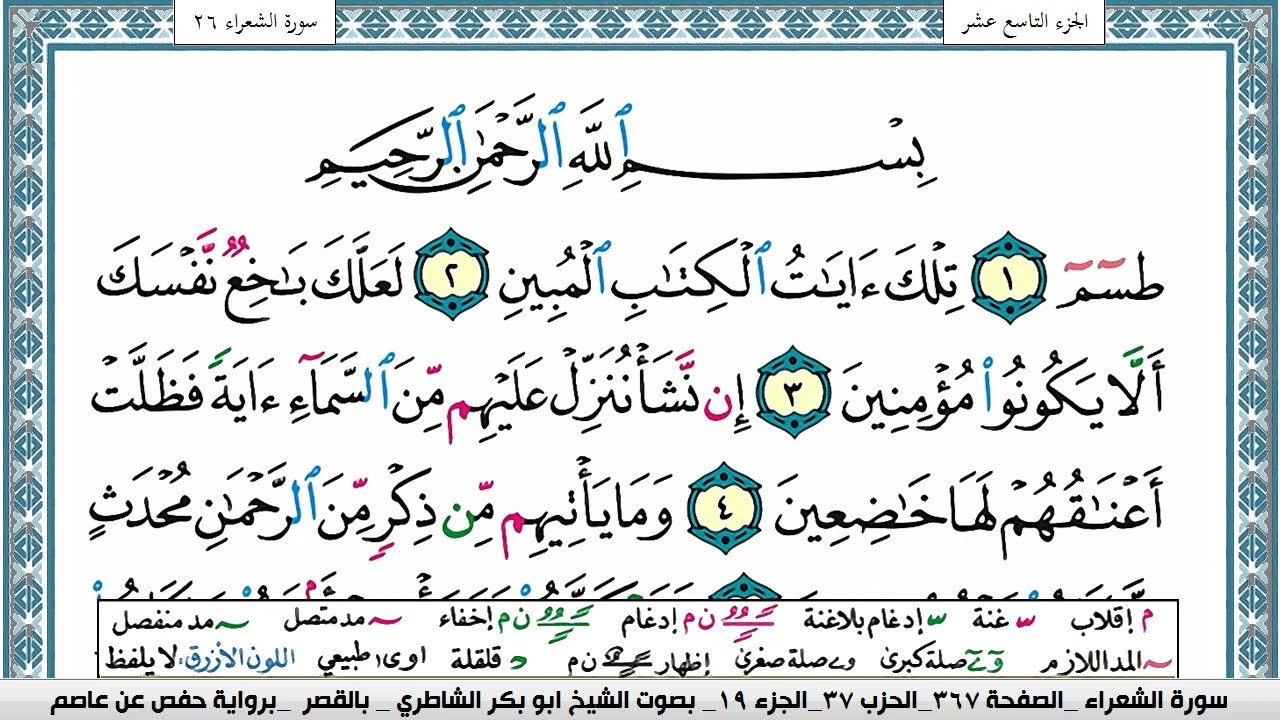 الجزء التاسع عشر
سورة الشعراء ٢٦
بِسْمِ ٱللَّهِ ٱلرَّحْمَٰنِ ٱلرَّحِيمِ
طسٓمٓ ١ تِلْكَ ءَايَٰتُ ٱلْكِتَٰبِ ٱلْمُبِينِ ٢ لَعَلَّكَ بَٰخِعٌ نَّفْسَكَ
أَلَّا يَكُونُوا۟ مُؤْمِنِينَ ٣ إِن نَّشَأْ نُنَزِّلْ عَلَيْهِم مِّنَ ٱلسَّمَآءِ ءَايَةً فَظَلَّتْ
أَعْنَٰقُهُمْ لَهَا خَٰضِعِينَ ٤ وَمَا يَأْتِيهِم مِّن ذِكْرٍ مِّنَ ٱلرَّحْمَٰنِ مُحْدَثٍ
م إقلاب غنة إدغام بلاغنة ن م إدغام ن م إخفاء مد متصل مد منفصل
المد اللازم صلة كبرى صلة صغرى إظهار ن م قلقلة اوى طبيعي اللون الأزرق: لا يلفظ
سورة الشعراء _الصفحة ٣٦٧_الحزب ٣٧_الجزء ١٩_ بصوت الشيخ ابو بكر الشاطري _ بالقصر _برواية حفص عن عاصم